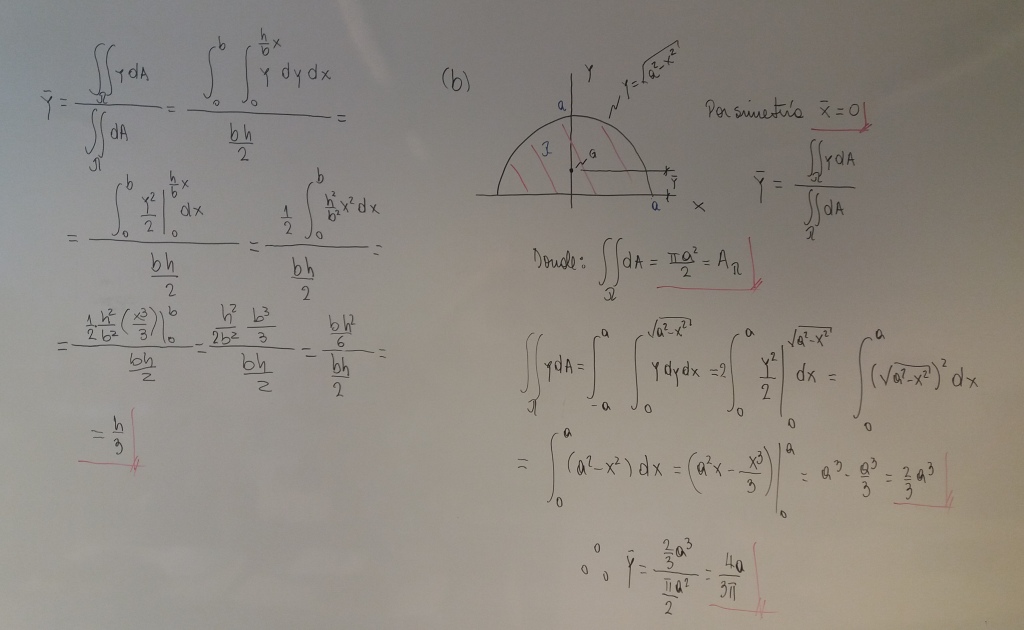 Ȳ = ∬_R y dA / ∬_R dA = ∫_0^b ∫_0^{h/b x} y dy dx / (bh/2) =
= ∫_0^b y²/2 |_0^{h/b x} dx / (bh/2) = 1/2 ∫_0^b h²/b² x² dx / (bh/2) =
= 1/2 h²/b² (x³/3)|_0^b / (bh/2) = h²/2b² b³/3 / (bh/2) = bh²/6 / (bh/2) =
= h/3
(b)
y
y=√(a²-x²)
a
R
G
ȳ
a
x
Por simetría x̄ = 0
Ȳ = ∬_R y dA / ∬_R dA
Donde: ∬_R dA = πa²/2 = A_R
∬_R y dA = ∫_{-a}^a ∫_0^{√(a²-x²)} y dy dx = 2 ∫_0^a y²/2 |_0^{√(a²-x²)} dx = ∫_0^a (√(a²-x²))² dx
= ∫_0^a (a²-x²) dx = (a²x - x³/3)|_0^a = a³ - a³/3 = 2/3 a³
∴ Ȳ = 2/3 a³ / (πa²/2) = 4a/3π